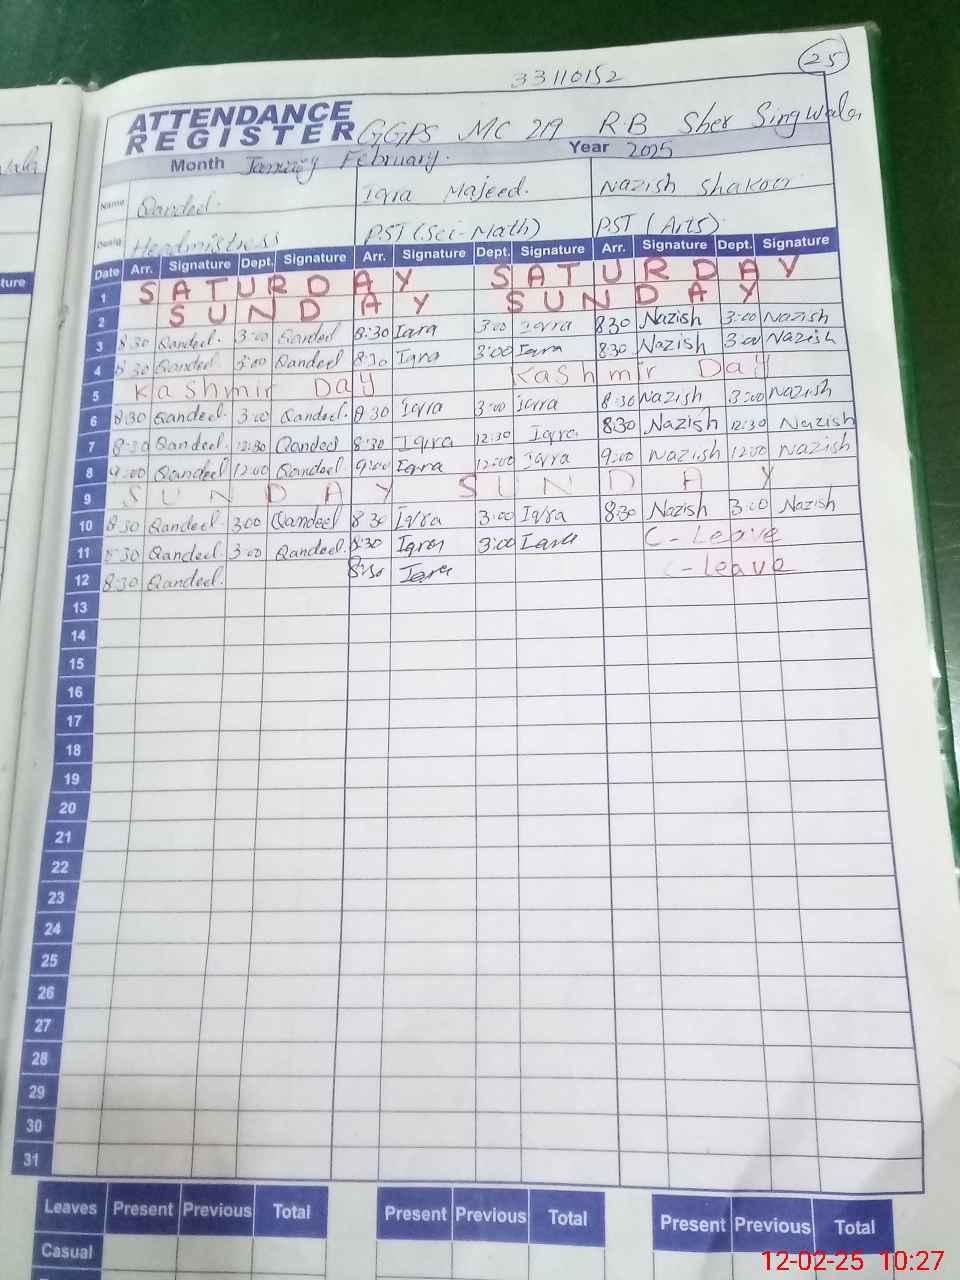 25
33110152
ATTENDANCE REGISTER GGPS MC 219 R.B Sher Singwala
Month January February. Year 2025
Name Qandeel. Iqra Majeed. Nazish Shakoor
Desig Headmistress PST (Sci-Math) PST (Arts)
Date Arr. Signature Dept. Signature Arr. Signature Dept. Signature Arr. Signature Dept. Signature
1 SATURDAY SATURDAY
2 SUNDAY SUNDAY
3 8:30 Qandeel. 3:00 Qandeel 8:30 Iqra 3:00 Iqra 8:30 Nazish 3:00 Nazish
4 8:30 Qandeel. 3:00 Qandeel 8:30 Iqra 3:00 Iqra 8:30 Nazish 3:00 Nazish
5 Kashmir Day Kashmir Day
6 8:30 Qandeel. 3:00 Qandeel. 8:30 Iqra 3:00 Iqra 8:30 Nazish 3:00 Nazish
7 8:30 Qandeel. 12:30 Qandeel 8:30 Iqra 12:30 Iqra 8:30 Nazish 12:30 Nazish
8 9:00 Qandeel 12:00 Qandeel. 9:00 Iqra 12:00 Iqra 9:00 Nazish 12:00 Nazish
9 SUNDAY SUNDAY
10 8:30 Qandeel. 3:00 Qandeel 8:30 Iqra 3:00 Iqra 8:30 Nazish 3:00 Nazish
11 8:30 Qandeel. 3:00 Qandeel. 8:30 Iqra 3:00 Iqra C-Leave
12 8:30 Qandeel. 8:30 Iqra C-Leave
13
14
15
16
17
18
19
20
21
22
23
24
25
26
27
28
29
30
31
Leaves Present Previous Total Present Previous Total Present Previous Total
Casual
12-02-25 10:27